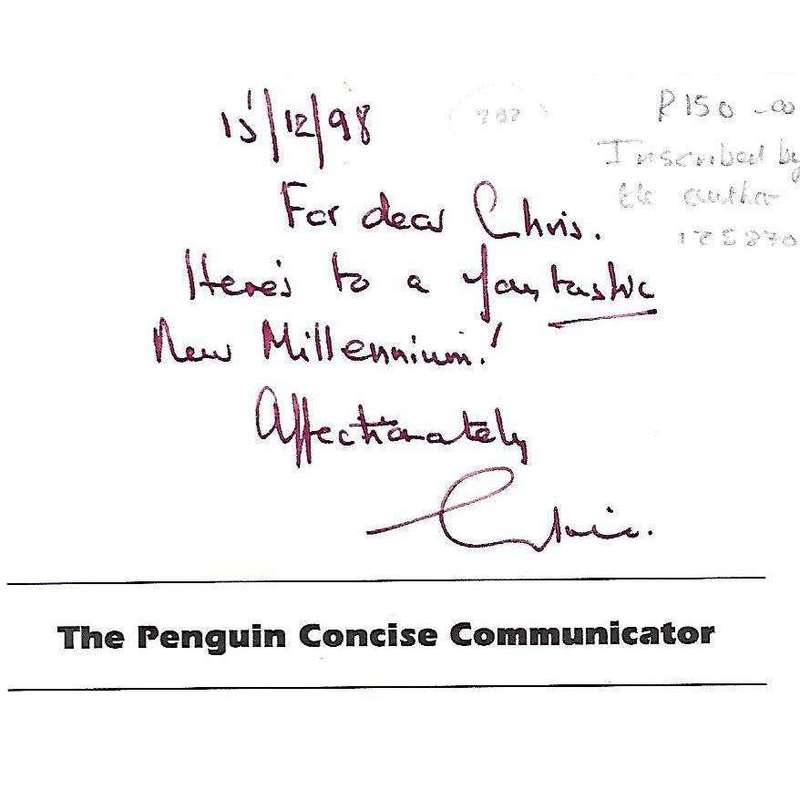 15/12/98
R150-00
Inscribed by
the author
For dear Chris.
Here's to a fantastic
New Millennium!
Affectionately
The Penguin Concise Communicator